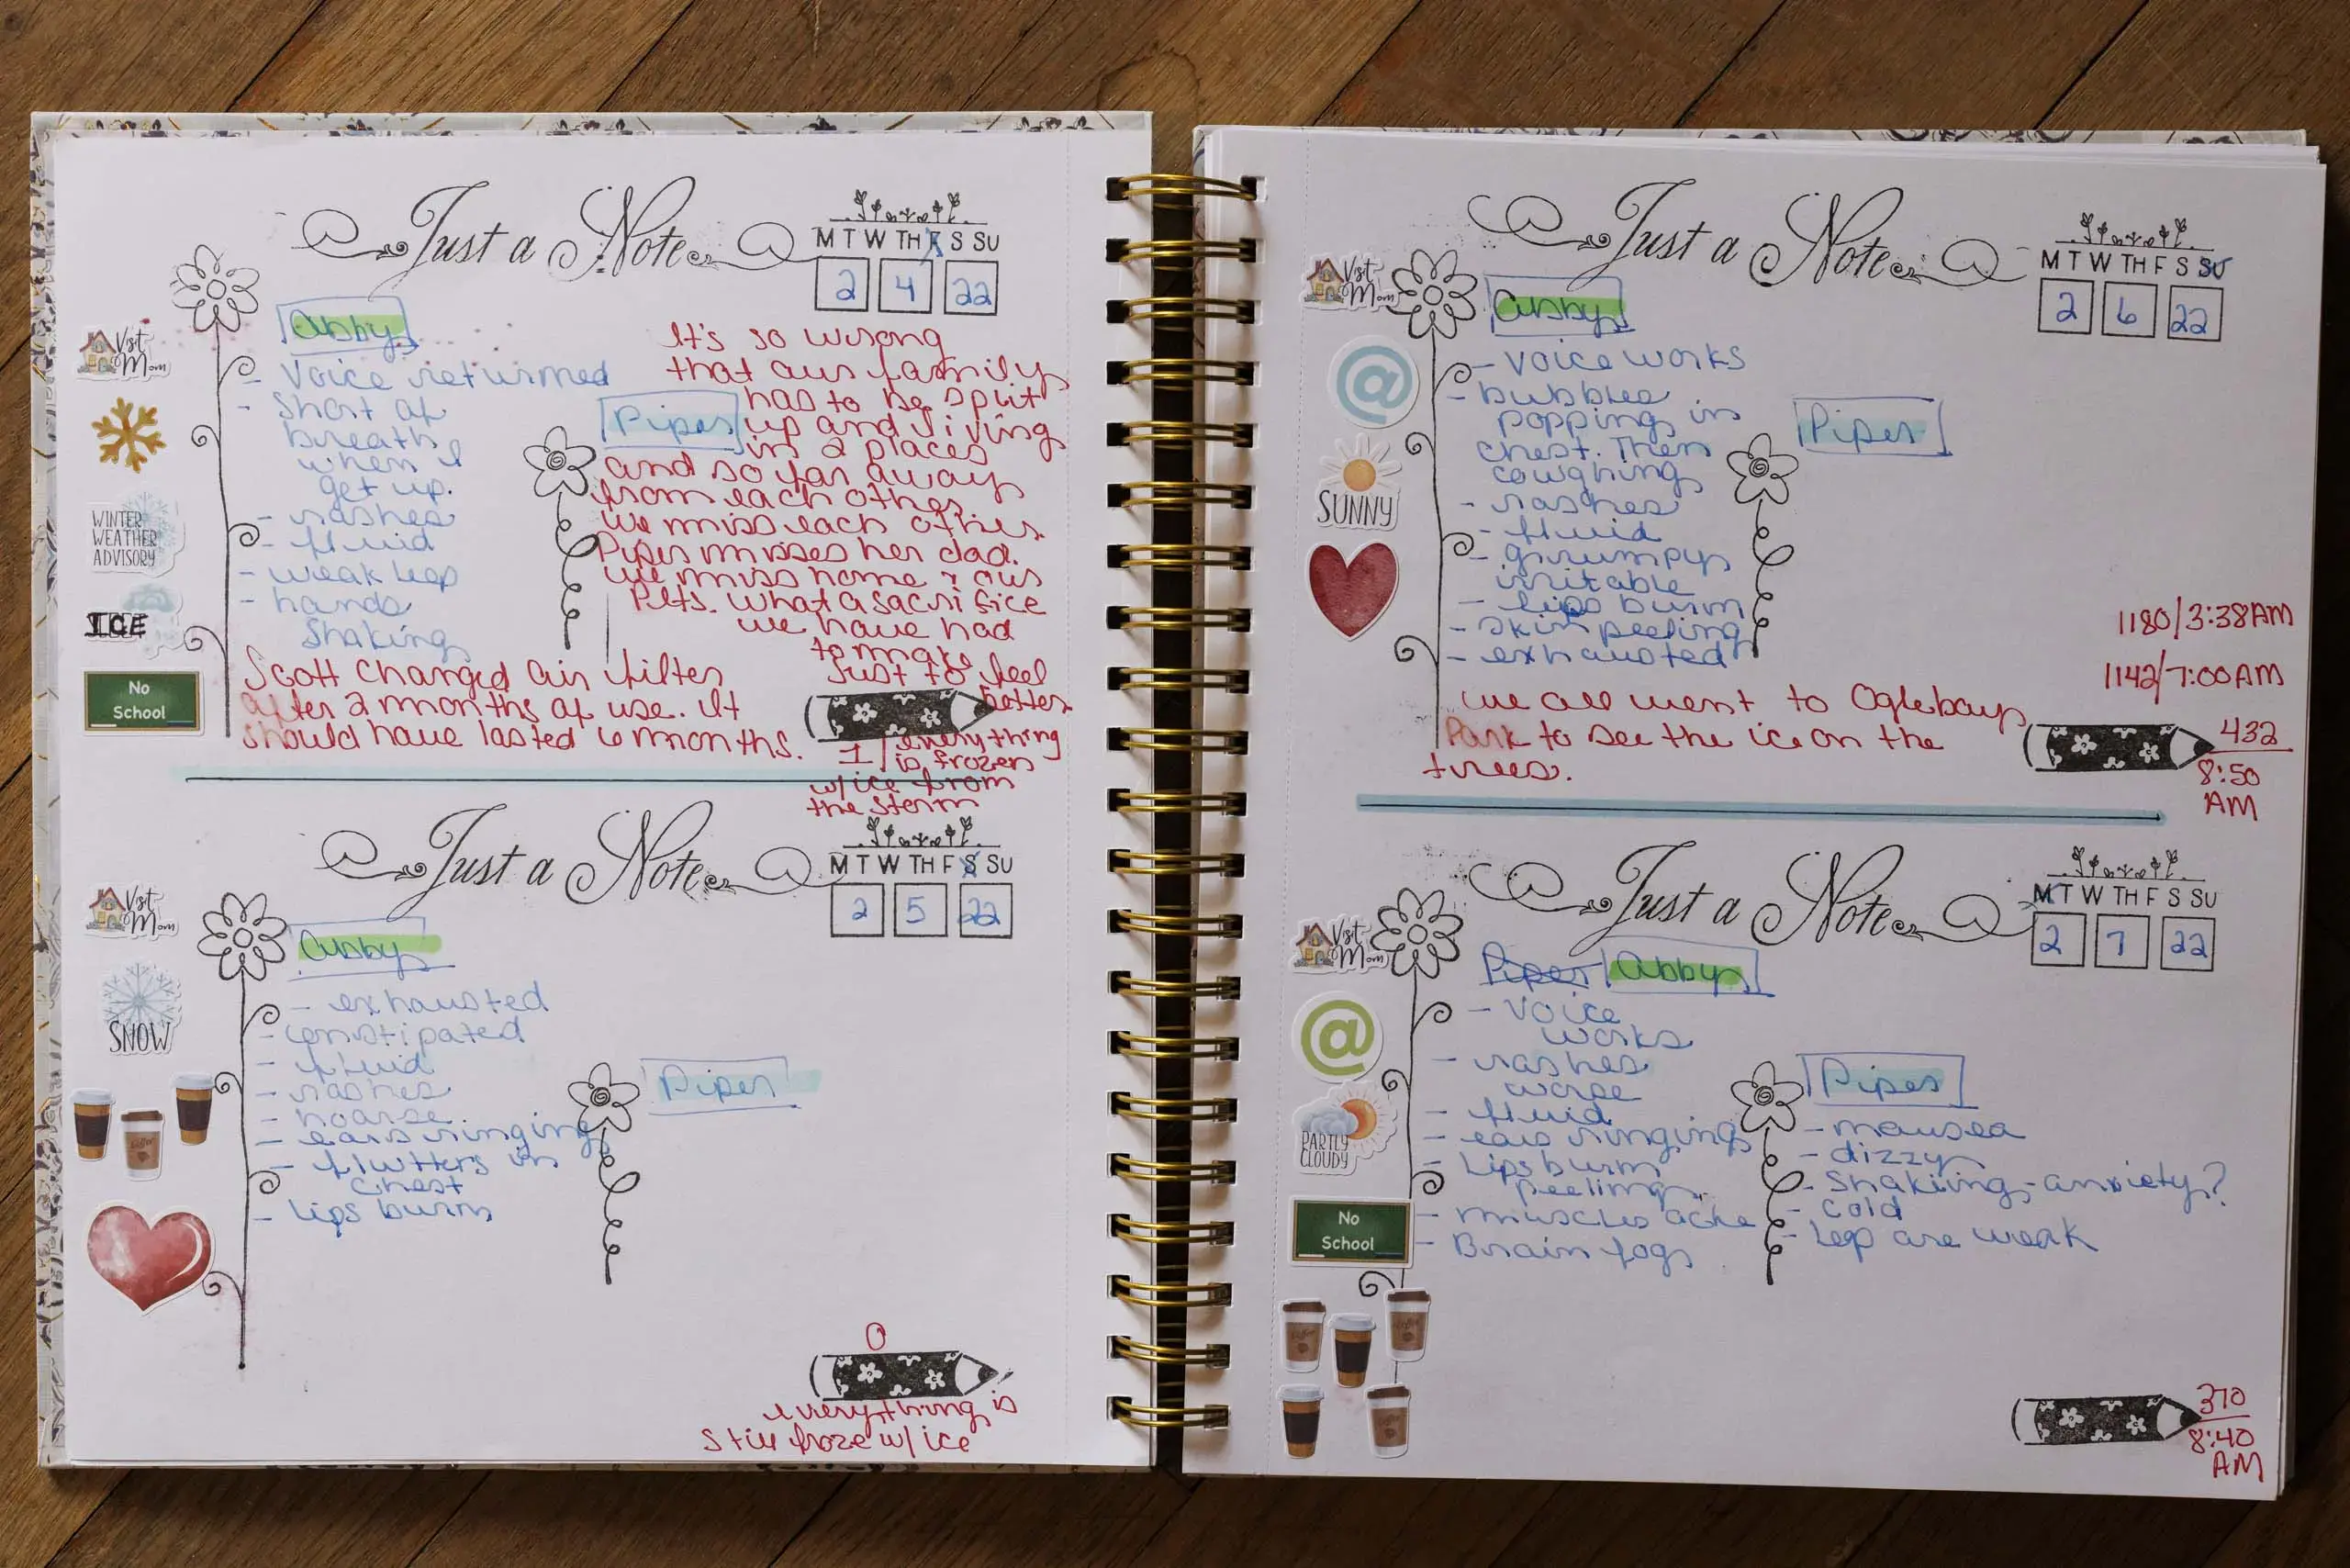 Just a Note
M T W TH F S SU
2 4 22
Visit Mom
WINTER WEATHER ADVISORY
ICE
No School
Abby
- Voice returned
- Short of
breath
when I
get up.
- rashes
- fluid
- weak leg
- hands
shaking
Piper
It's so wrong
that our family
has to be split
up and living
in 2 places
and so far away
from each other.
We miss each other.
Piper misses her dad.
We miss home & our
pets. What a sacrifice
we have had
to make
just to feel
better.
Scott changed air filter
after 2 months of use. It
should have lasted 6 months.
1 / everything
is frozen
w/ice from
the storm
Just a Note
M T W TH F S SU
2 5 22
Visit Mom
SNOW
Abby
- exhausted
- constipated
- fluid
- rashes
- hoarse
- ears ringing
- flutters in
chest
- Lips burn
Piper
0
everything is
still froze w/ice
Just a Note
M T W TH F S SU
2 6 22
Visit Mom
@
SUNNY
Abby
- Voice works
- bubbles
popping in
chest. Then
coughing
- rashes
- fluid
- grumpy
irritable
- lips burn
- skin peeling
- exhausted
Piper
1180/3:38AM
1142/7:00AM
432
8:50
AM
We all went to Oglebay
Park to see the ice on the
trees.
Just a Note
M T W TH F S SU
2 7 22
Visit Mom
@
PARTLY CLOUDY
No School
Piper Abby
- Voice
works
- rashes
worse
- fluid
- ears ringing
- Lips burn
peeling
- muscles ache
- Brain fog
Piper
- nausea
- dizzy
- Shaking-anxiety?
- cold
- Leg are weak
370
8:40
AM